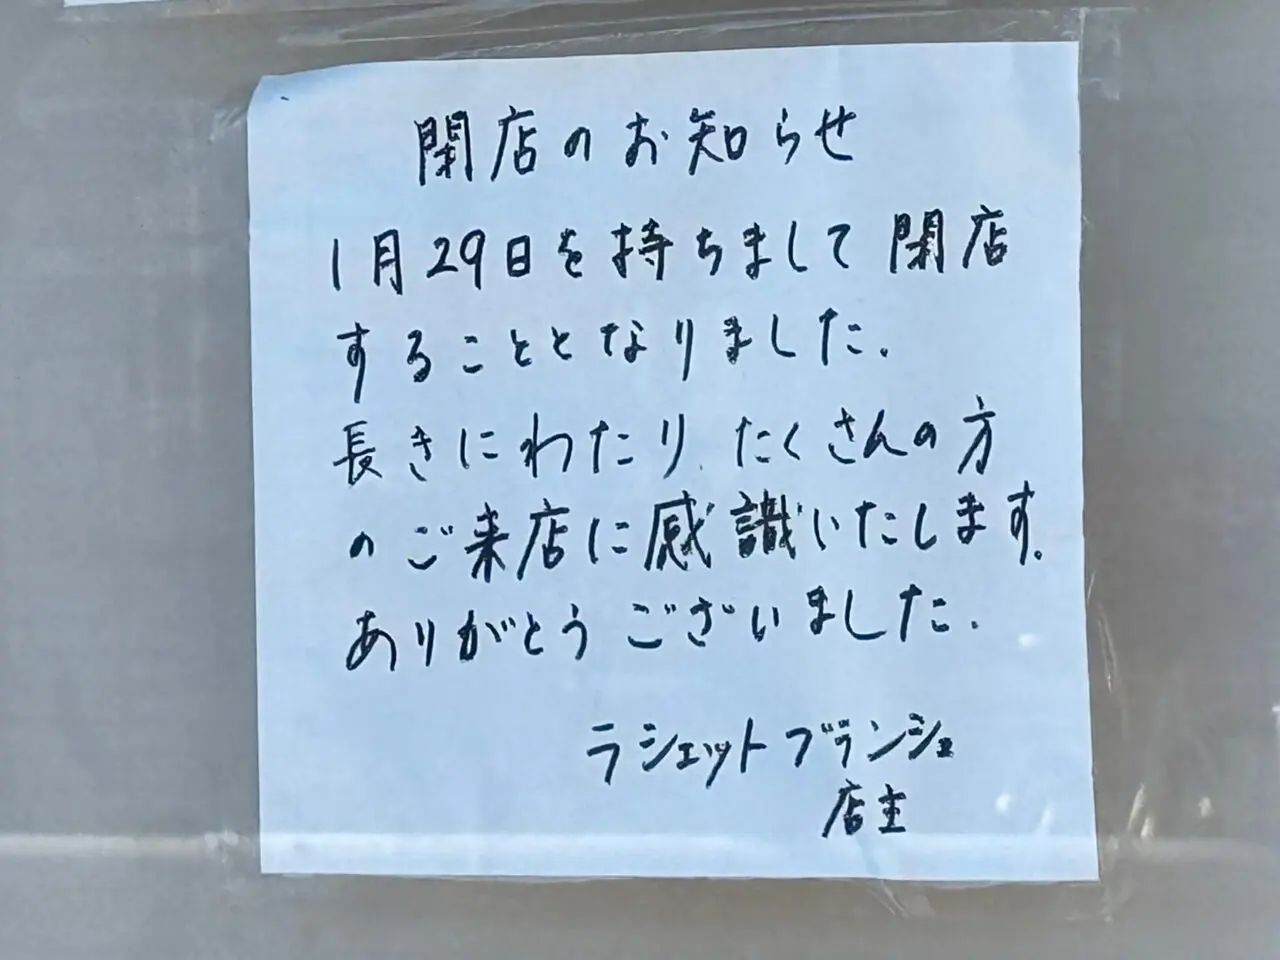 閉店のお知らせ
1月29日を持ちまして閉店
することとなりました.
長きにわたり たくさんの方
のご来店に感識いたします.
ありがとうございました.
ラシェットブランシュ
店主